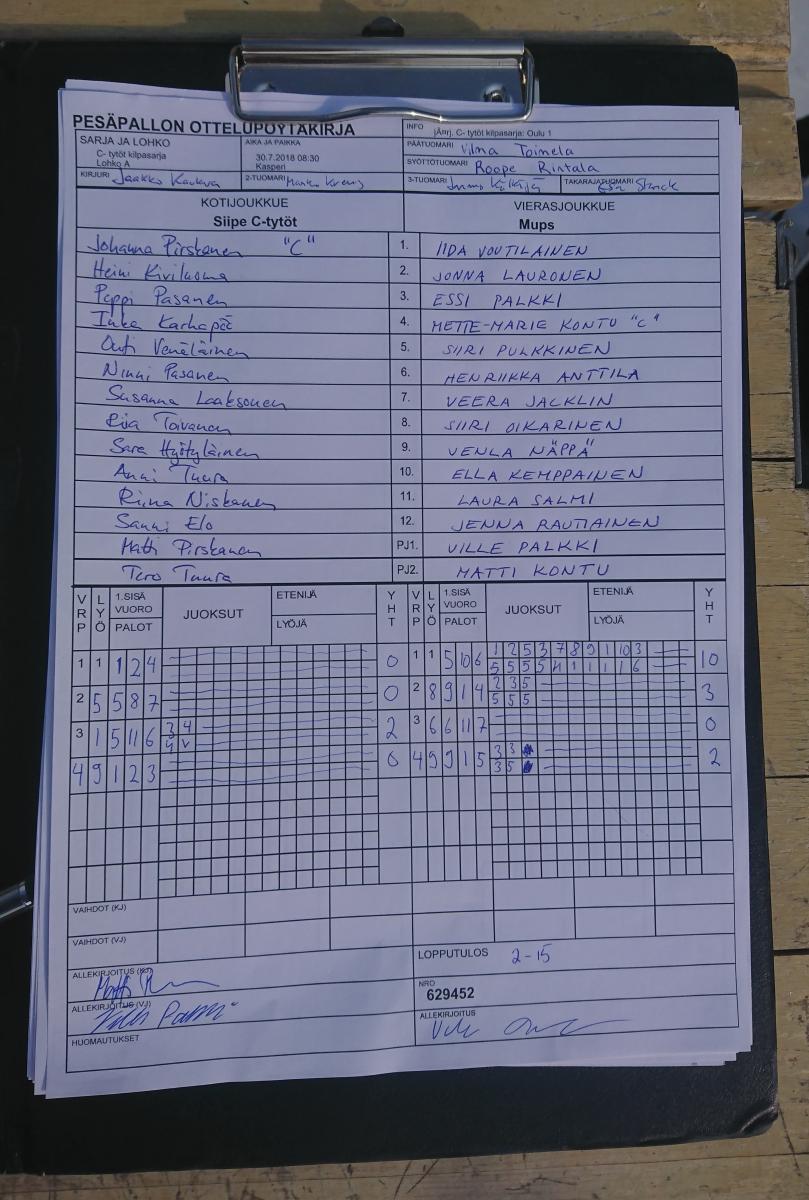 PESÄPALLON OTTELUPÖYTÄKIRJA
INFO jÄrrj. C- tytöt kilpasarja: Oulu 1
SARJA JA LOHKO
C- tytöt kilpasarja
Lohko A
AIKA JA PAIKKA
30.7.2018 08:30
Kasperi
PÄÄTUOMARI Vilma Toimela
SYÖTTÖTUOMARI Roope Rintala
KIRJURI Jaakko
2-TUOMARI
3-TUOMARI
TAKARAJATUOMARI
KOTIJOUKKUE
Siipe C-tytöt
VIERASJOUKKUE
Mups
Johanna Pirskanen "C" 1. IIDA VOUTILAINEN
Heini Kiviluoma 2. JONNA LAURONEN
Peppi Pasanen 3. ESSI PALKKI
Inka Karhapää 4. METTE-MARIE KONTU "C"
Outi Venäläinen 5. SIIRI PULKKINEN
Ninni Pasanen 6. HENRIIKKA ANTTILA
Susanna Laaksonen 7. VEERA JACKLIN
Toivanen 8. SIIRI OIKARINEN
Sara Hyötyläinen 9. VENLA NÄPPÄ
Anni Tuura 10. ELLA KEMPPAINEN
Riina Niskanen 11. LAURA SALMI
Sanni Elo 12. JENNA RAUTIAINEN
Matti Pirskanen PJ1. VILLE PALKKI
Tero Tuura PJ2. MATTI KONTU
VRP LYÖ 1.SISÄ VUORO PALOT JUOKSUT ETENIJÄ LYÖJÄ YHT VRP LYÖ 1.SISÄ VUORO PALOT JUOKSUT ETENIJÄ LYÖJÄ YHT
1 1 1 2 4 0 1 1 5 10 6 1 2 5 3 7 8 9 1 10 3 10
5 5 5 5 11 1 1 1 1 6
2 5 5 8 7 0 2 8 9 1 4 2 3 5 3
5 5 5
3 1 5 11 6 3 4 2 3 6 6 11 7 0
4 V
4 9 1 2 3 0 4 9 9 1 5 3 3 2
3 5
VAIHDOT (KJ)
VAIHDOT (VJ)
ALLEKIRJOITUS (KJ)
LOPPUTULOS 2-15
ALLEKIRJOITUS (VJ)
NRO
629452
HUOMAUTUKSET
ALLEKIRJOITUS